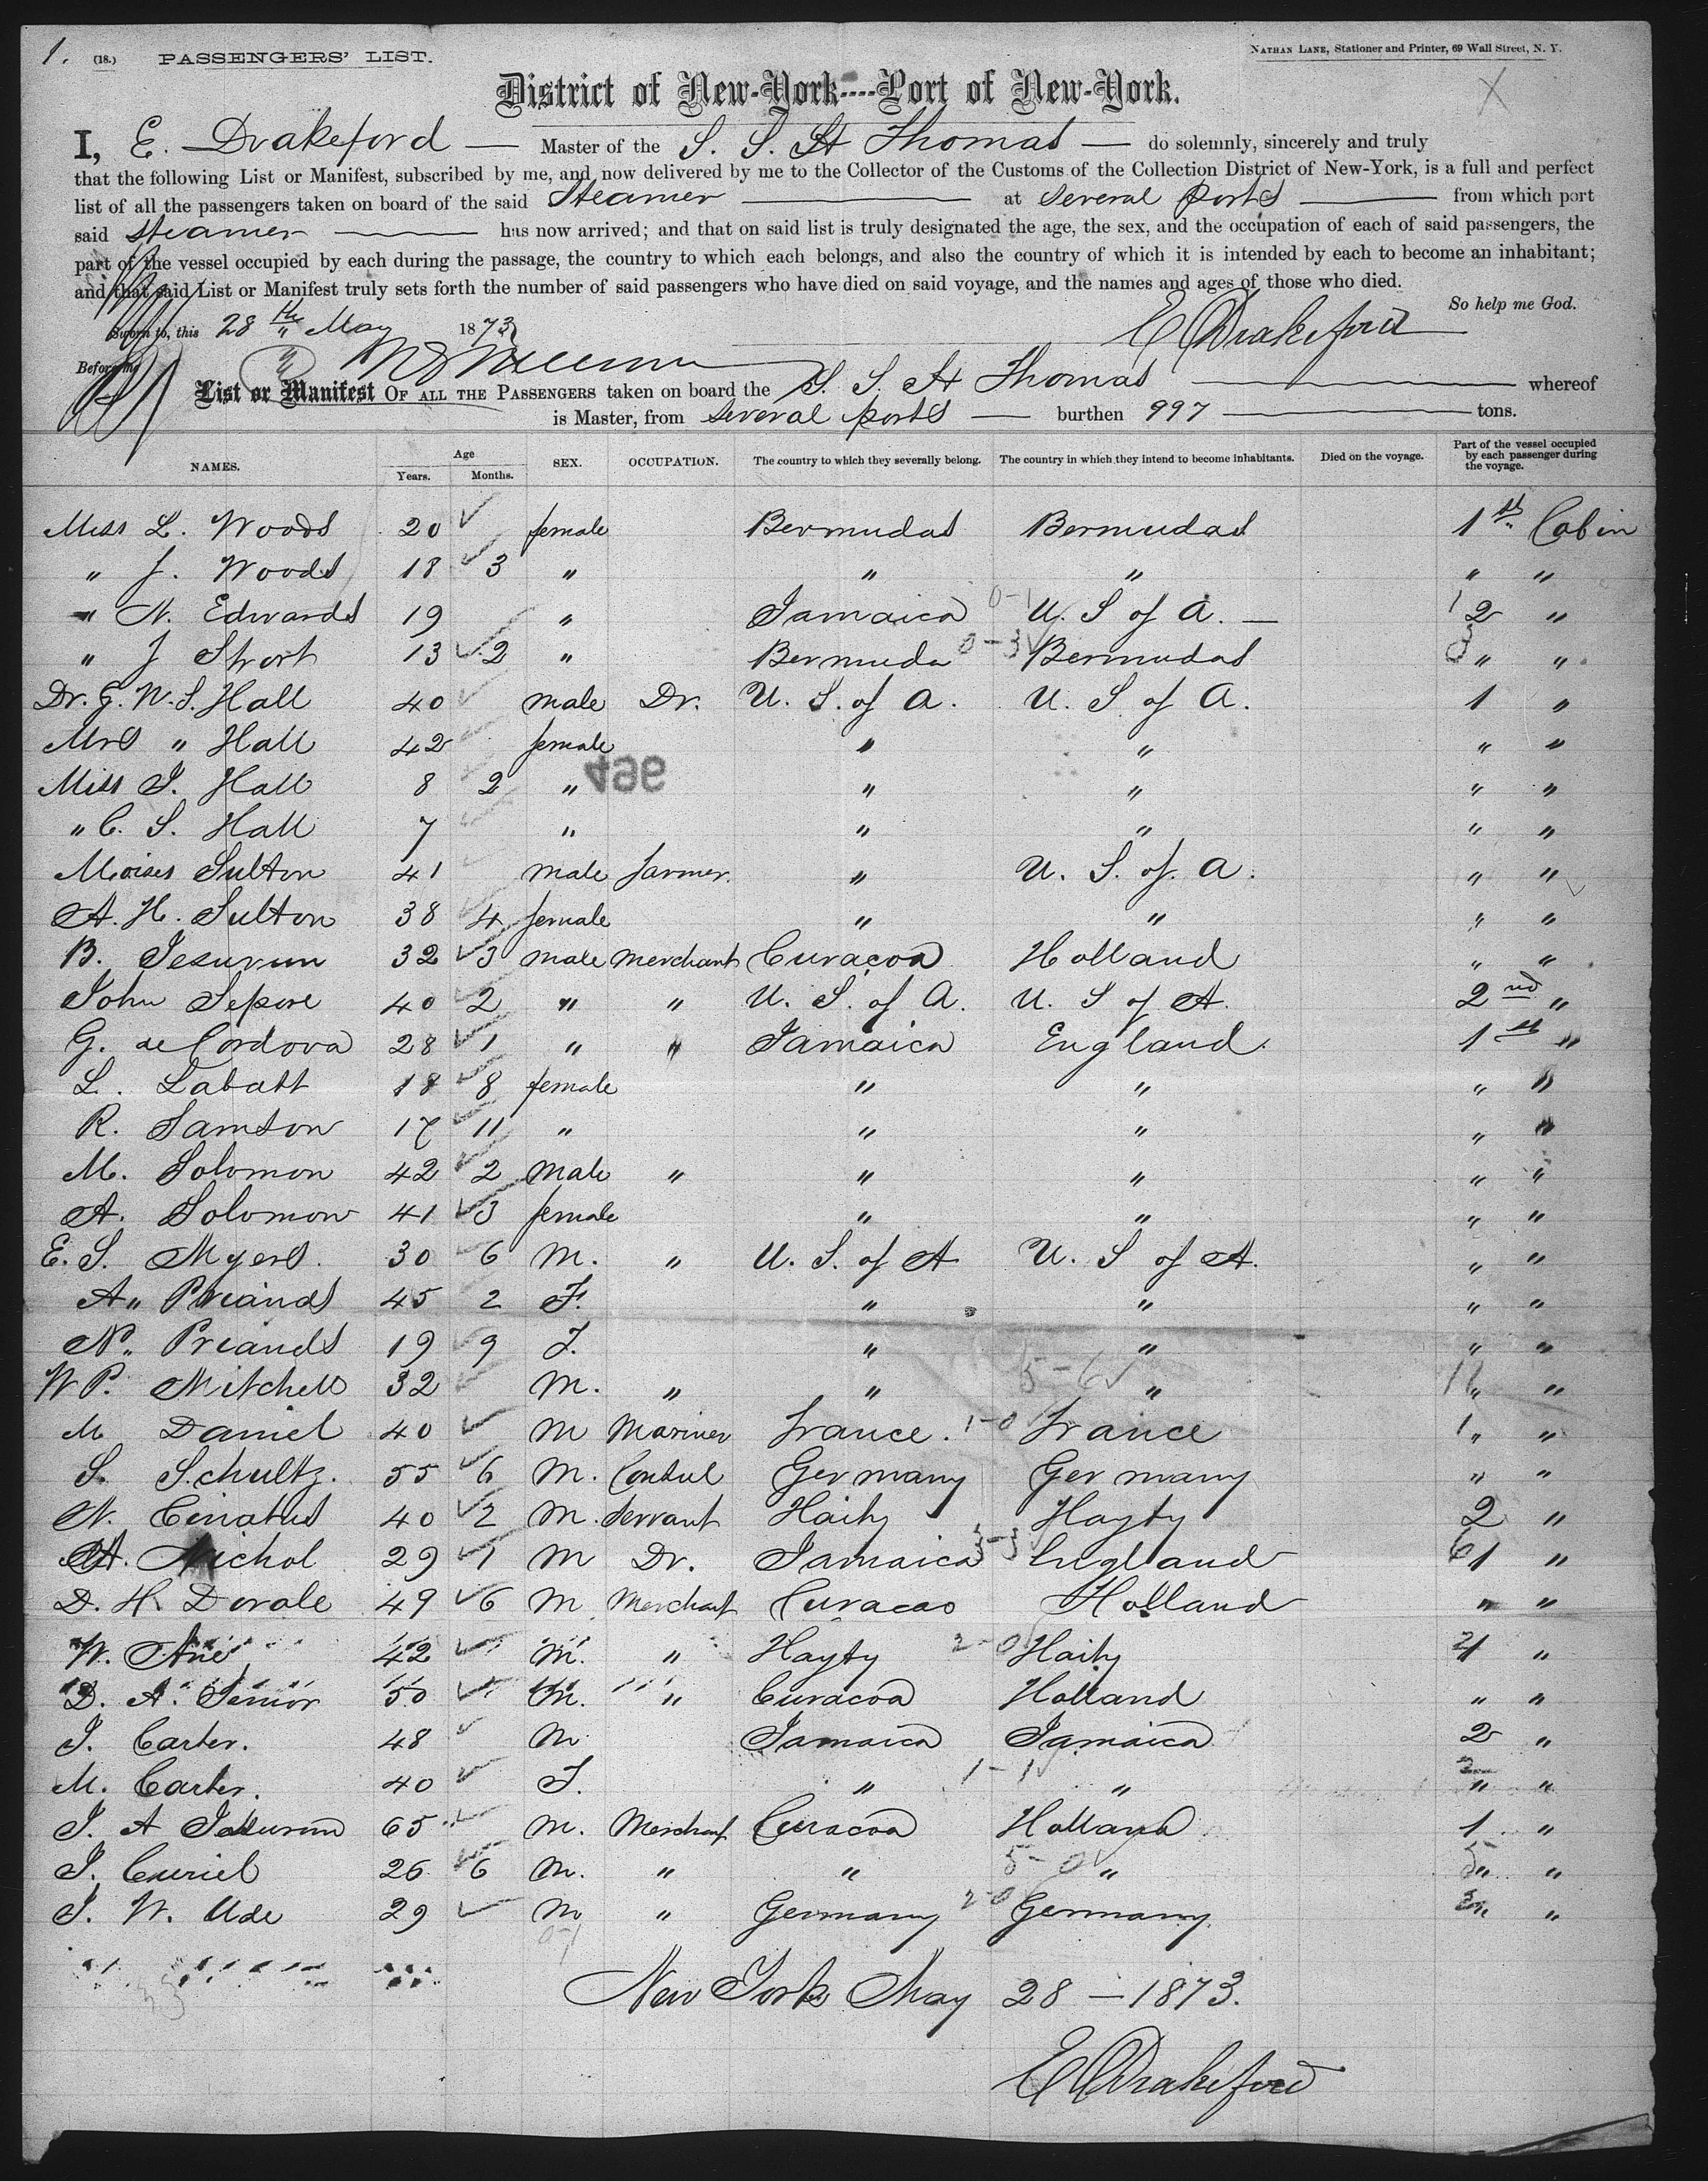 1. (18.) PASSENGERS' LIST. NATHAN LANE, Stationer and Printer, 69 Wall Street, N. Y.
District of New-York----Port of New-York.
I, E. Drakeford — Master of the S. S. St Thomas — do solemnly, sincerely and truly
that the following List or Manifest, subscribed by me, and now delivered by me to the Collector of the Customs of the Collection District of New-York, is a full and perfect
list of all the passengers taken on board of the said Steamer — at several ports — from which port
said steamer — has now arrived; and that on said list is truly designated the age, the sex, and the occupation of each of said passengers, the
part of the vessel occupied by each during the passage, the country to which each belongs, and also the country of which it is intended by each to become an inhabitant;
and that said List or Manifest truly sets forth the number of said passengers who have died on said voyage, and the names and ages of those who died.
So help me God.
Sworn to, this 28th May 1873 E Drakeford
Before me
List or Manifest OF ALL THE PASSENGERS taken on board the S. S. St Thomas — whereof
is Master, from several ports — burthen 997 — tons.
NAMES. Age Years. Months. SEX. OCCUPATION. The country to which they severally belong. The country in which they intend to become inhabitants. Died on the voyage. Part of the vessel occupied by each passenger during the voyage.
Miss L. Woods 20 female Bermudas Bermudas 1st Cabin
" J. Woods 18 3 " " " " "
" N. Edwards 19 " Jamaica U. S of A. — 2 "
" J Short 13 2 " Bermuda Bermudas " "
Dr. G. W. S. Hall 40 male Dr. U. S. of A. U. S of A. 1 "
Mrs " Hall 42 female " " " "
Miss I. Hall 8 2 " " " " "
496
" C. S. Hall 7 " " " " "
Moises Sulton 41 male farmer. " U. S. of. A. " "
A. H. Sulton 38 4 female " " " "
B. Jesurun 32 3 male merchant Curaçoa Holland " "
John 40 2 " " U. S. of A. U. S of A. 2nd "
G. de Cordova 28 1 " " Jamaica England. 1st "
L. Labatt 18 8 female " " " "
R. Samson 17 11 " " " " "
M. Solomon 42 2 male " " " " "
A. Solomon 41 3 female " " " "
E. S. Myers. 30 6 M. " U. S. of A U. S of A. " "
A" Priands 45 2 F. " " " "
N" Priands 19 9 F. " " " "
W P. Mitchell 32 M. " " " " "
M Daniel 40 M Mariner France. France 1 "
S. Schultz. 55 6 M. Consul Germany Germany " "
N. 40 2 M. Servant Haity Hayty 2 "
A. Nichol 29 1 M Dr. Jamaica England 1 "
D. H. Dovale 49 6 M Merchant Curacao Holland " "
W. 42 M. " Hayty Haity 1 "
D. A. Senior 50 M. " Curacoa Holland " "
J. Carter. 48 M Jamaica Jamaica 2 "
M. Carter. 40 F. " " " "
J. A Jesurun 65 M. Merchant Curacoa Holland 1 "
J. Curiel 26 6 M. " " " " "
J. W. Ude 29 M " Germany Germany. " "
New York May 28 — 1873.
E Drakeford